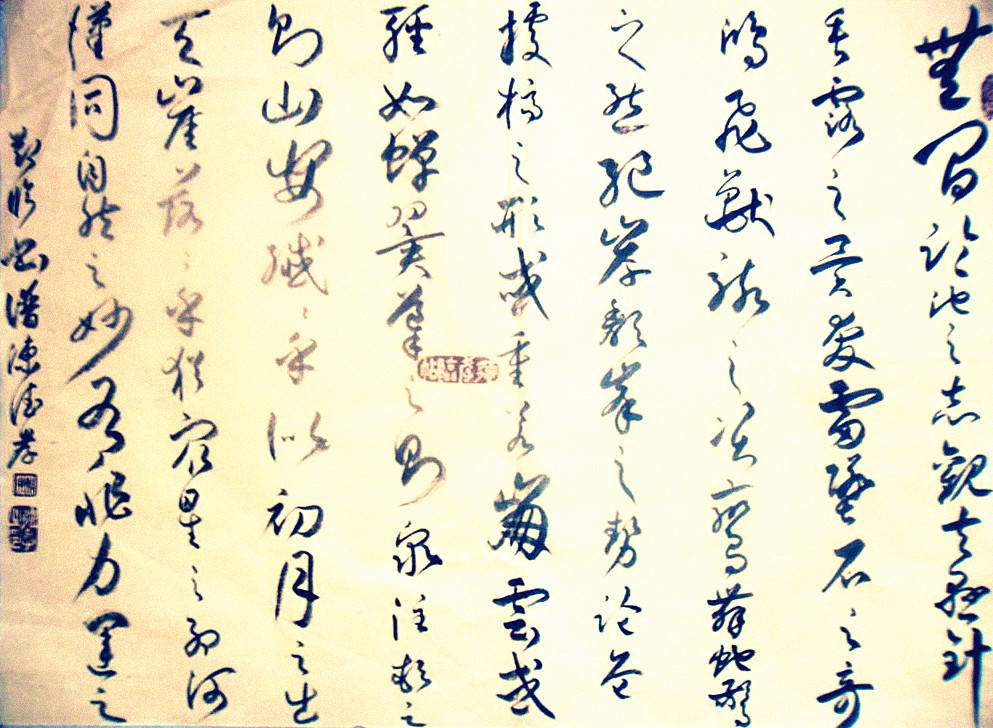 無間臨池之志觀夫懸針
垂露之異奔雷墜石之奇
鴻飛獸駭之資鸞舞蛇驚
之態絕岸頹峰之勢臨危
據槁之形或重若崩雲或
輕如蟬翼導之則泉注頓之
則山安纖々乎似初月之出
天崖落々乎猶眾星之列河
漢同自然之妙有非力運之
臨書譜陳德孝